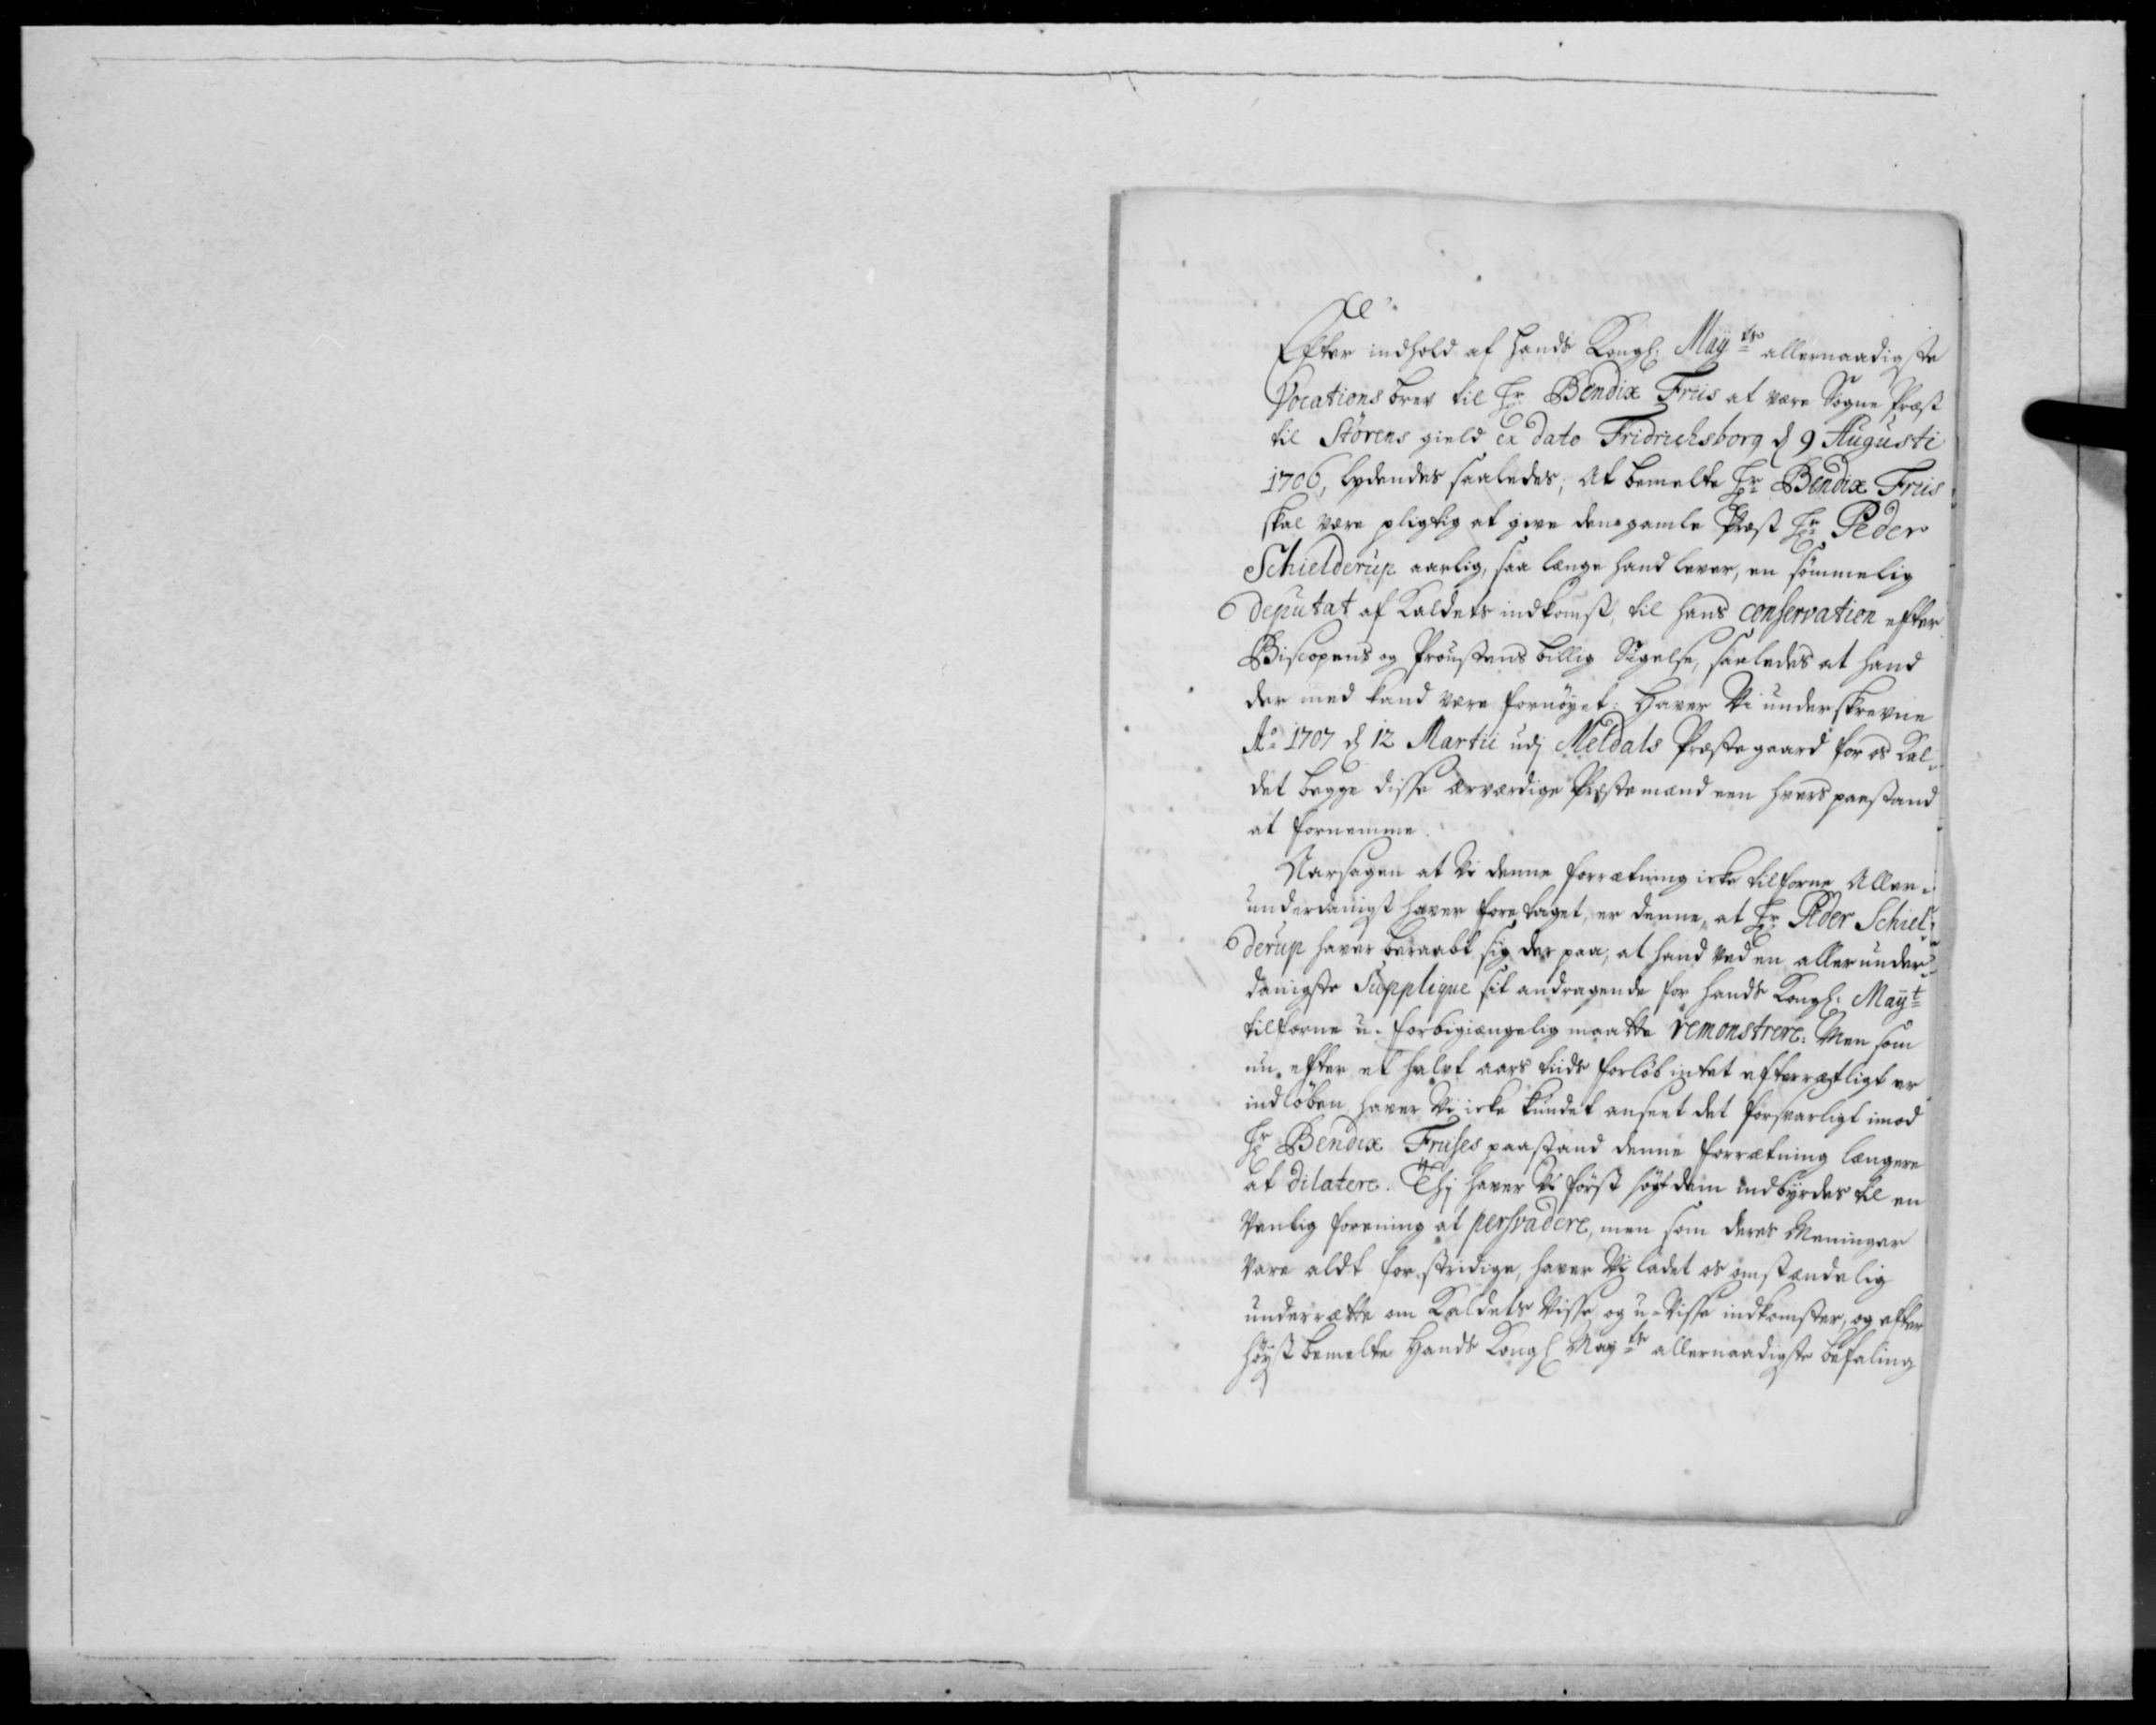 Efter indhold af Hands Kongl: Maÿ<sup>ts</sup> allernaadigste
Vocations brev til Hr Bendix Friis at være Sogne Præst
til Störens gield ex dato Fridrichsborg d 9 Augusti
1706, lydendes saaledes; At bemelte Hr Bendix Friis
skal være pligtig at give den gamle Præst Hr Peder
Schielderup aarlig, saa længe hand lever, en sömmelig
deputat af Kaldets indkomst, til hans conservation efter
Biscopens og Proustens billig Sigelse, saaledes at hand
der med kand være fornöyet: Haver Vi underskrevne
Ao 1707 d 12 Martii udj Meldals Præstegaard for os Kal-
det begge disse ærværdige Præstemænd een hvers paastand
at fornemme.
Aarsagen at Vi denne forrætning icke tilforne Aller-
underdanigst haver foretaget, er denne, at Hr Peder Schiel-
derup haver beraabt sig der paa, at hand ved en allerunder-
danigste Supplique sit andragende for Hands Kongl: Maÿt
tilforne u-forbigiængelig maatte remonstrere: Men som
nu efter et halvt aars tids forlöb intet efterrætligt er
indlöben, haver Vi icke kundet anseet det forsvarligt imod
Hr Bendix Friises paastand denne forrætning længere
at dilatere. Thj haver Vi först sögt dem indbÿrdes til en
Venlig forening at persvadere, men som deres Meninger
vare aldt for stridige, haver Vi ladet os omstændelig
underrætte om Kaldets Visse og u-Visse indkomster, og efter
höÿst bemelte Hands Kongl Maÿ<sup>ts</sup> allernaadigste befaling